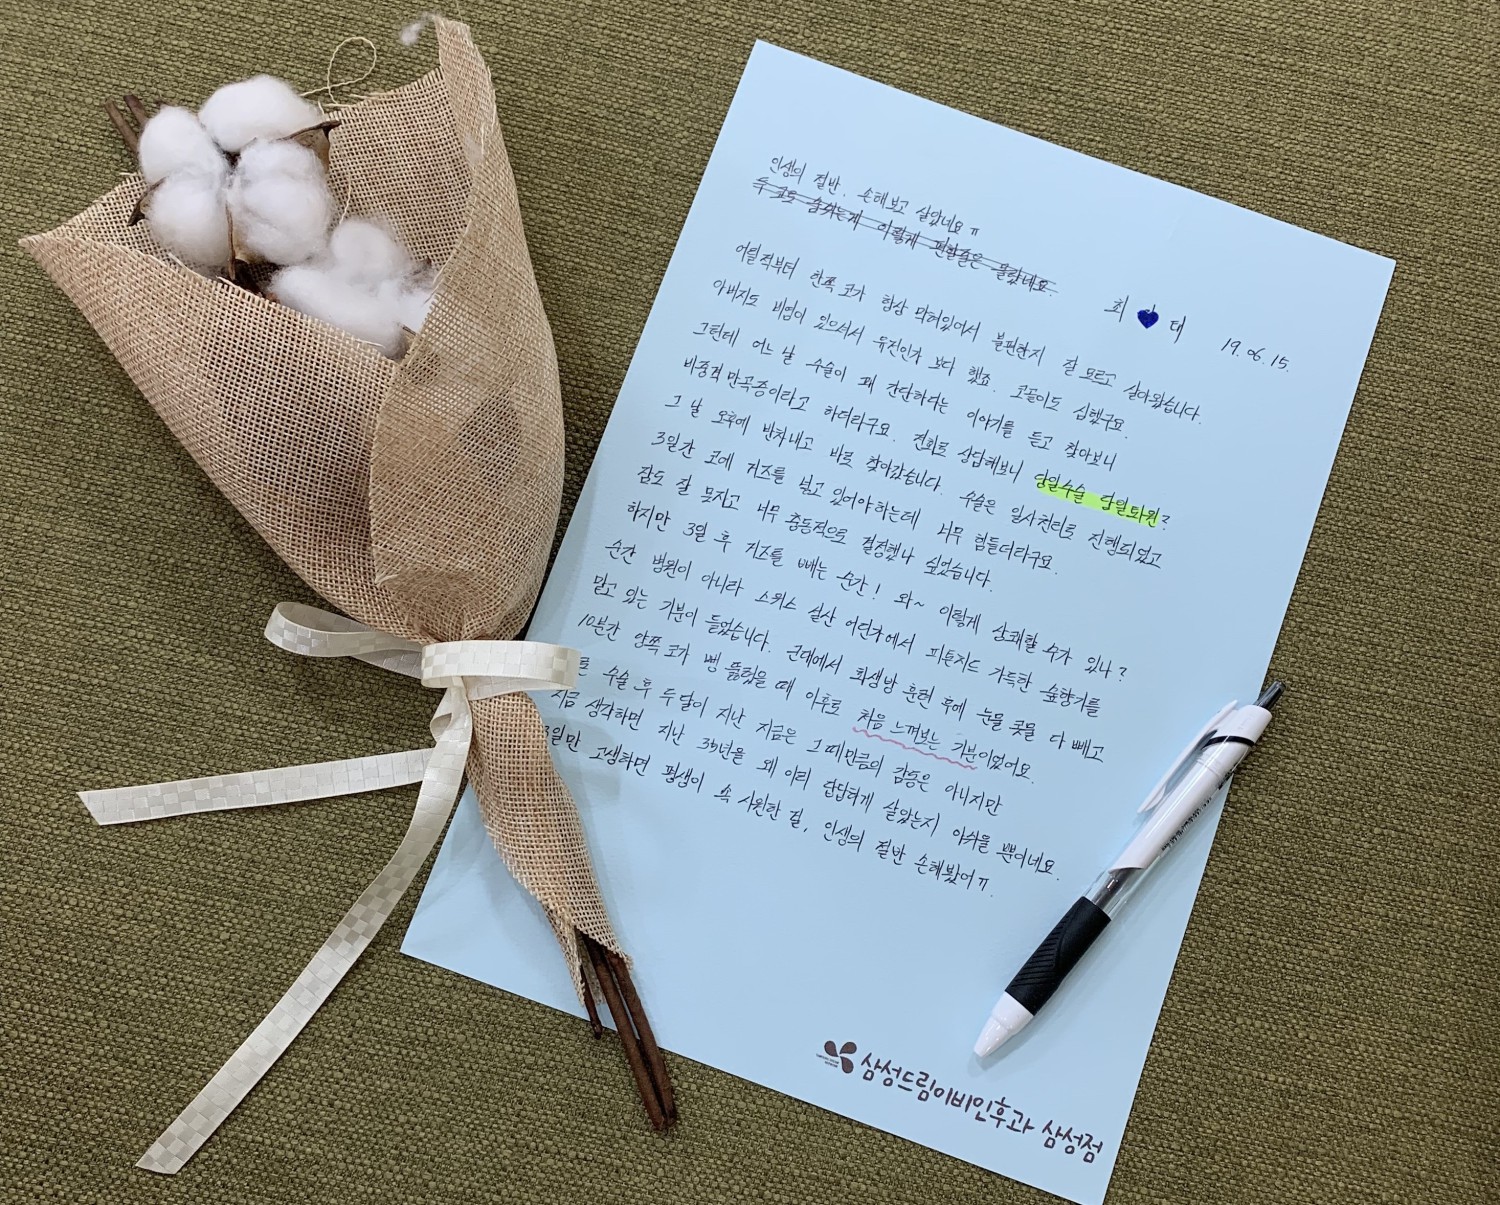 인생의 절반. 손해보고 살았네요 ㅠ
두 코로 숨쉬는게 이렇게 편함줄은 몰랐네요.
최 ♥ 대 19.06.15.
어릴적부터 한쪽 코가 항상 막혀있어서 불편한지 잘 모르고 살아왔습니다.
아버지도 비염이 있으셔서 유전인가 보다 했죠. 코골이도 심했구요.
그런데 어느 날 수술이 꽤 간단하다는 이야기를 듣고 찾아보니
비중격만곡증이라고 하더라구요. 전화로 상담해보니 당일수술 당일퇴원?
그 날 오후에 반차내고 바로 찾아갔습니다. 수술은 일사천리로 진행되었고
3일간 코에 거즈를 넣고 있어야하는데 너무 힘들더라구요.
잠도 잘 못자고 너무 충동적으로 결정했나 싶었습니다.
하지만 3일 후 거즈를 빼는 순간! 와~ 이렇게 상쾌할 수가 있나?
순간 병원이 아니라 스위스 설산 어딘가에서 피톤치드 가득한 숲향기를
맡고 있는 기분이 들었습니다. 군대에서 화생방 훈련 후에 눈물 콧물 다 빼고
10분간 양쪽 코가 뻥 뚫렸을 때 이후로 처음 느껴보는 기분이었어요.
수술 후 두 달이 지난 지금은 그때만큼의 감동은 아니지만
지금 생각하면 지난 35년을 왜 이리 답답하게 살았는지 아쉬울 뿐이네요.
3일만 고생하면 평생이 쏙 시원한 걸, 인생의 절반 손해봤어ㅠ
삼성드림이비인후과 삼성점